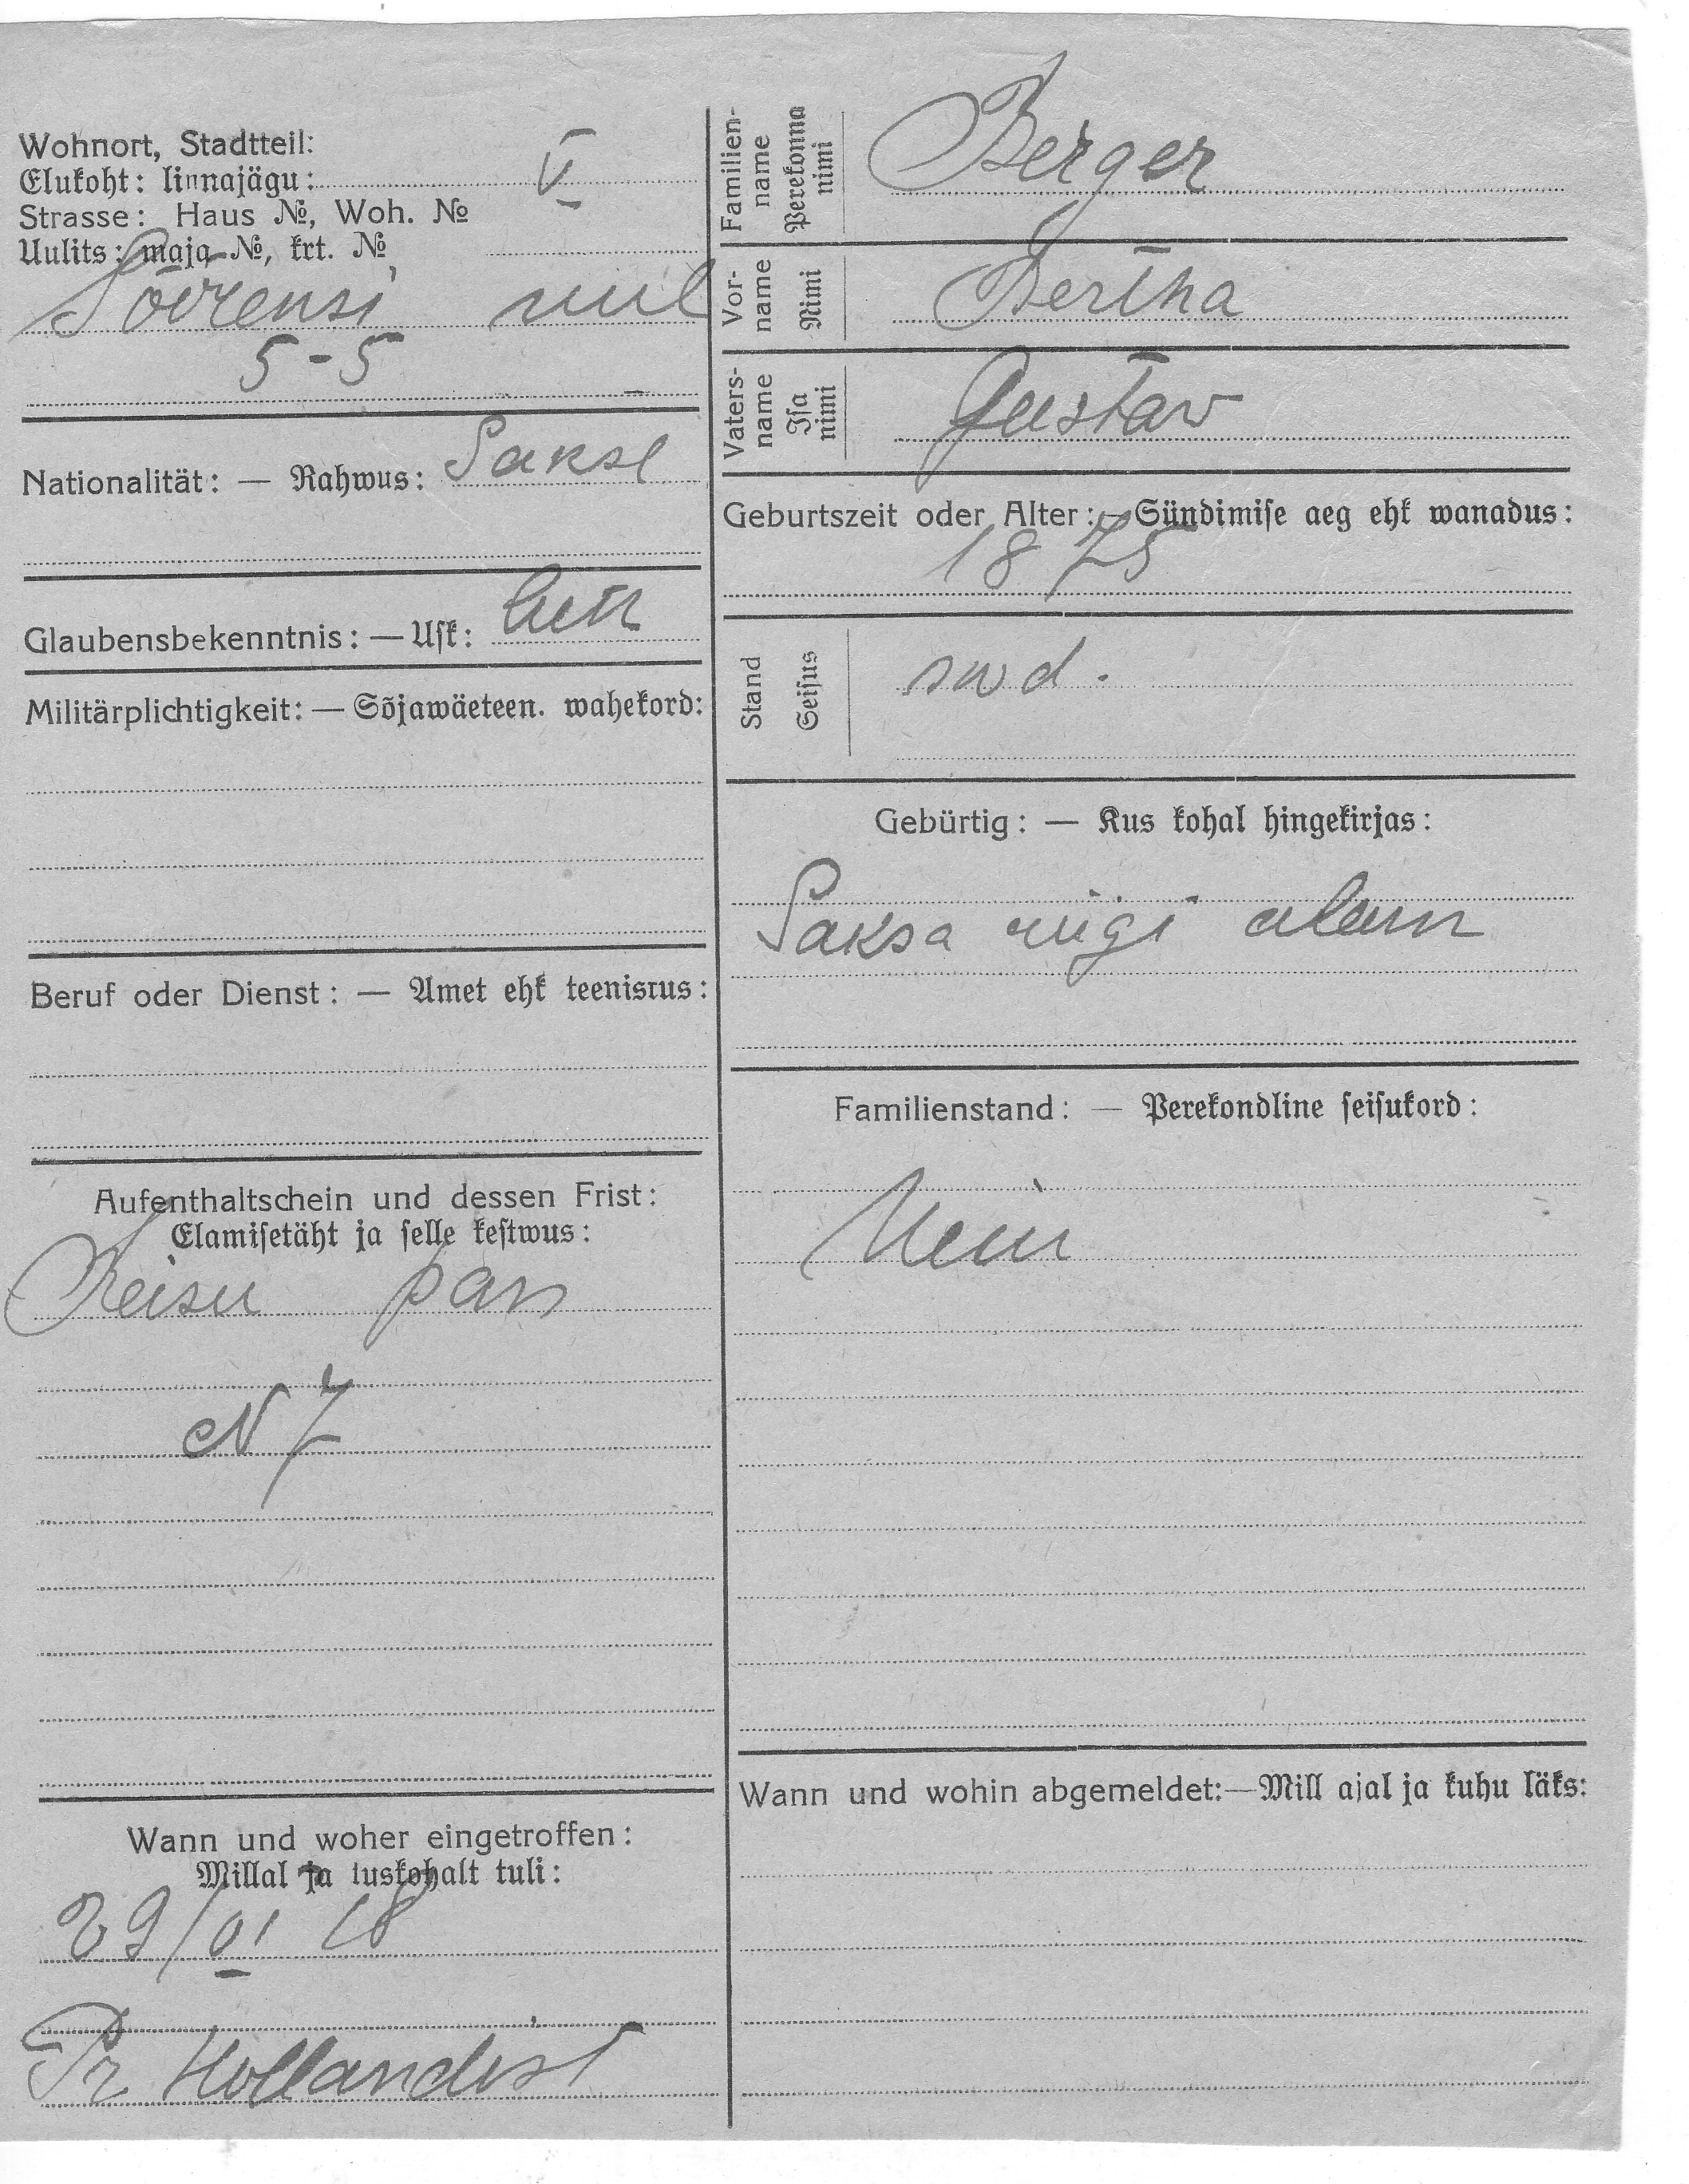 Wohnort, Stadtteil:
Elukoht: linnajägu: V
Strasse: Haus №, Woh. №
Uulits: maja №, krt. №
5-5
Nationalität: — Rahwus: Sakse
Glaubensbekenntnis: — Usk: Lutr
Militärplichtigkeit: — Sõjawäeteen. wahekord:
Beruf oder Dienst: — Amet ehk teenistus:
Aufenthaltschein und dessen Frist:
Elamisetäht ja selle kestwus:
Reisu pass
N 7
Wann und woher eingetroffen:
Millal ja kuskohalt tuli:
29/VI 18
Hollandist
Familien-
name
Perekonna
nimi
Berger
Vor-
name
Nimi
Bertha
Vaters-
name
Isa
nimi
Gustav
Geburtszeit oder Alter: — Sündimise aeg ehk wanadus:
1875
Stand
Seisus
Gebürtig: — Kus kohal hingekirjas:
Saksa riigi alam
Familienstand: — Perekondline seisukord:
Wann und wohin abgemeldet: — Mill ajal ja kuhu läks: